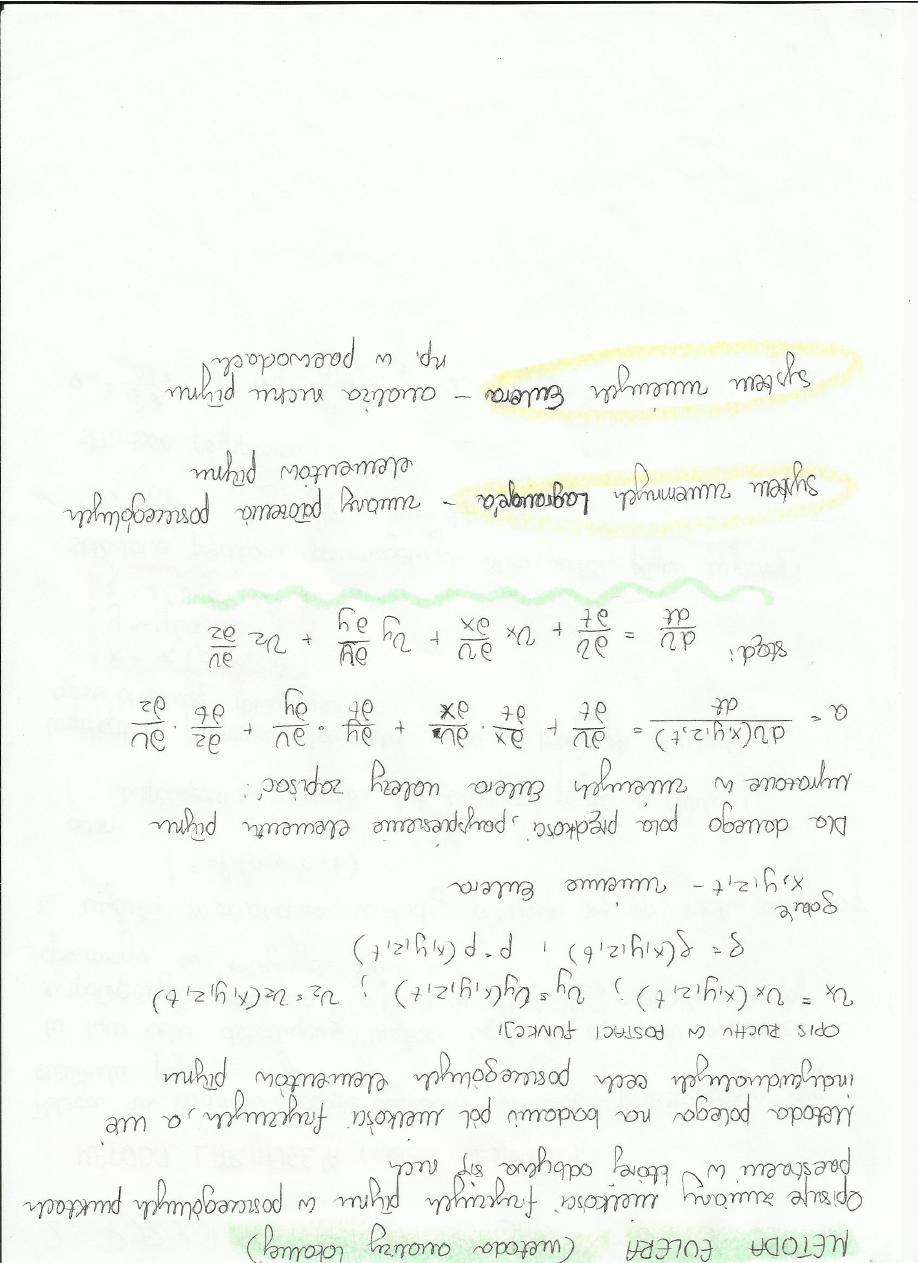 METODA EULERA (metoda analizy lokalnej)
Opisuje zmiany wielkości fizycznych płynu w poszczególnych punktach
przestrzeni w której odbywa się ruch
Metoda polega na badaniu pól wielkości fizycznych, a nie
indywidualnych cech poszczególnych elementów płynu
OPIS RUCHU W POSTACI FUNKCJI
Vx = Vx(x,y,z,t) ; Vy = Vy(x,y,z,t) ; Vz = Vz(x,y,z,t)
ρ = ρ(x,y,z,t) , p = p(x,y,z,t)
gdzie
x,y,z,t - zmienne Eulera
Dla danego pola prędkości, przyspieszenie elementu płynu
wyrażone w zmiennych Eulera należy zapisać:
a = dV(x,y,z,t)/dt = ∂V/∂t + ∂x/∂t · ∂V/∂x + ∂y/∂t · ∂V/∂y + ∂z/∂t · ∂V/∂z
stąd: dV/dt = ∂V/∂t + Vx ∂V/∂x + Vy ∂V/∂y + Vz ∂V/∂z
System zmiennych Lagrange'a - zmiany położenia poszczególnych
elementów płynu
System zmiennych Eulera - analiza ruchu płynu
np. w przewodach